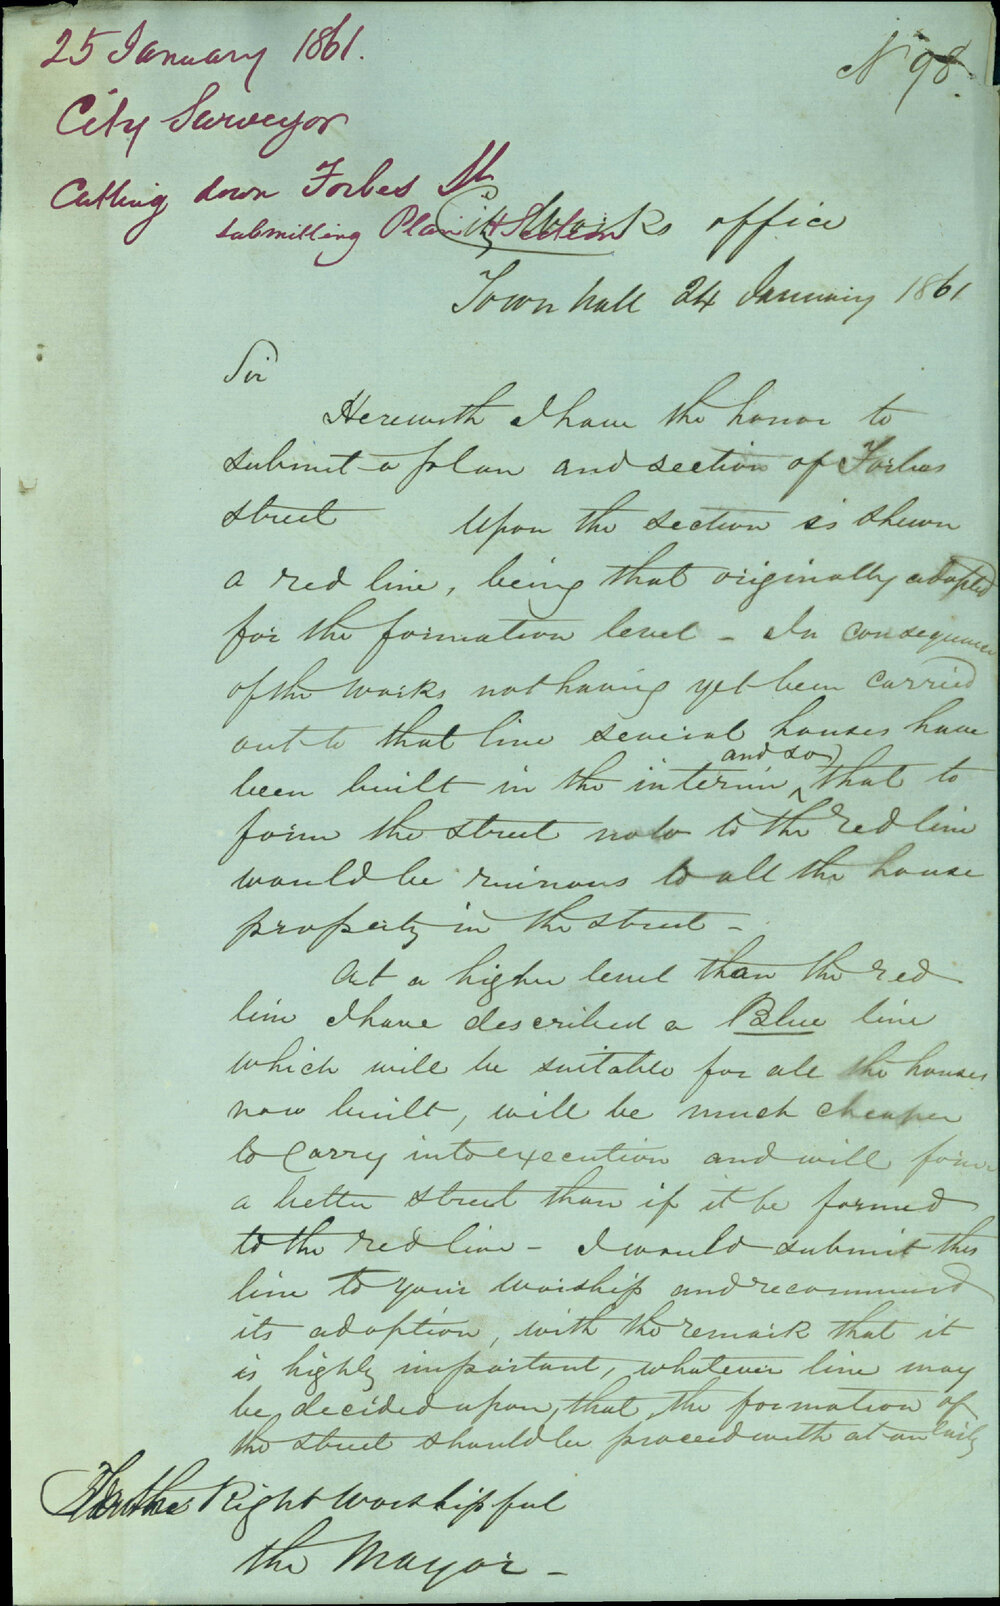 25 January 1861.
No 98.
City Surveyor
Cutting down Forbes St
submitting Plan & Section
City Works office
Town hall 24 January 1861
Sir
Herewith I have the honor to
submit a plan and section of Forbes
street Upon the section is shewn
a red line, being that originally adopted
for the formation level - In consequence
of the works not having yet been carried
out to that line several houses have
been built in the interim and so that to
form the street now to the red line
would be ruinous to all the house
property in the street -
At a higher level than the red
line I have described a Blue line
which will be suitable for all the houses
now built, will be much cheaper
to carry into execution and will form
a better street than if it be formed
to the red line - I would submit this
line to your worship and recommend
its adoption, with the remark that it
is highly important, whatever line may
be decided upon, that the formation of
the street should be proceed with at an early
The Right Worshipful
the Mayor -